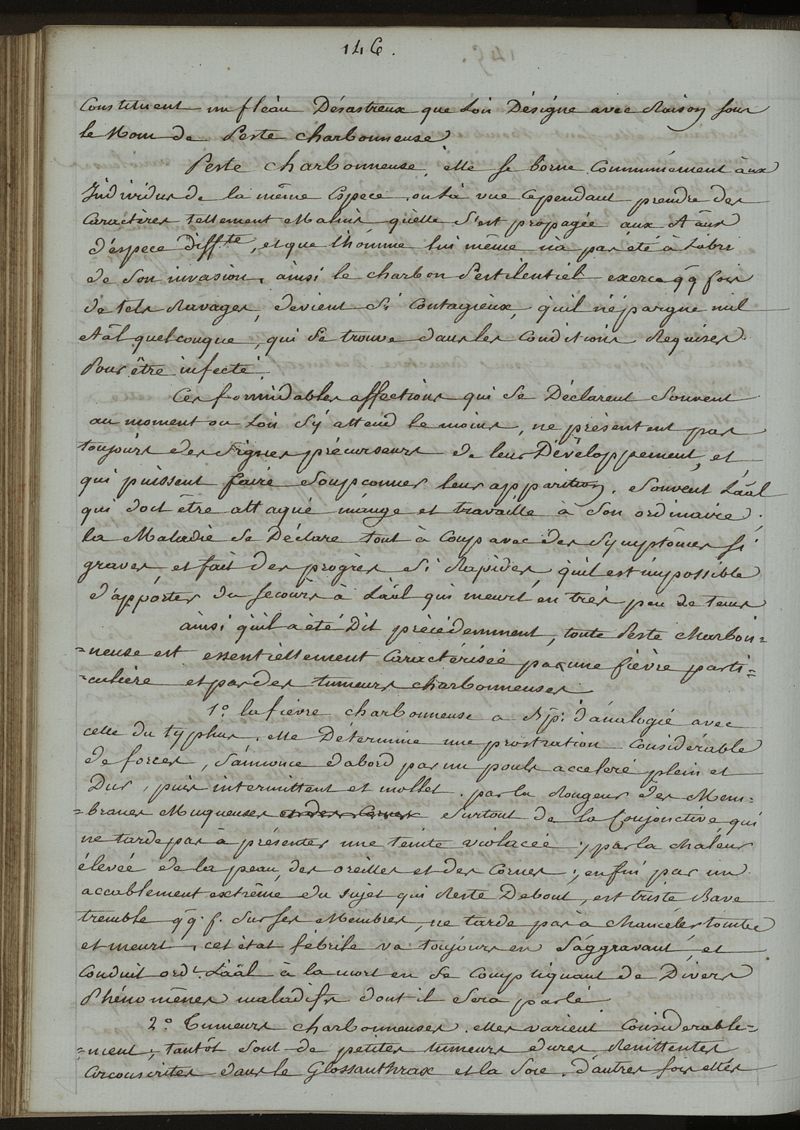 146.
Constituent un fléau Désastreux que L'on Désigne avec Raison sous
le Nom de Peste charbonneuse.
Peste charbonneuse, elle se borne Communément aux
Individus de la même Espece, on l'a vue Cependant prendre des
Caractères tellement Malins qu'elle s'est propagée aux Aāux
d'éspece diff.te, et que l'homme lui même n'a pas été à L'abri
de Son invasion, ainsi le charbon Pestilentiel exerce qq fois
de tels Ravages, devient Si Contagieux, qu'il n'épargne nul
Aāl quelconque, qui se trouve dans les Conditions Requises
Pour être infecté.
Ces formidables affections qui se Déclarent Souvent
au moment ou L'on S'y attend le moins, ne présentent pas
toujours des Signes précurseurs de leur Développement, et
qui puissent faire Soupconner leur apparition. Souvent L'aāl
qui doit être attaqué mange et travaille à Son ordinaire.
la Maladie se Déclare tout à Coup avec des Symptômes si
graves et fait des progrès Si Rapides, qu'il est impossible
d'apporter du Secours à L'aāl qui meurt en très peu de tems
ainsi qu'il a été Dit précédemment, toute Peste charbon=
=neuse est essentiellement Caractérisée par une fièvre parti=
=culière et par des tumeurs charbonneuses.
1.o la fièvre charbonneuse a d'analogie avec
celle du typhus, elle Détermine une prostration Considérable
de forces, S'annonce d'abord par un pouls acceleré plein et
Dur, puis intermittent et mollet. par la Rougeur des Mem=
=branes Muqueuses et des Cornes Surtout de la Conjonctive qui
ne tarde pas à présenter une teinte violacée, par la chaleur
élevée de la peau, des oreilles et des Cornes, enfin par un
accablement extrême du Sujet qui Reste Debout, est triste Bave
tremble qq. f. Sur ses Membres, ne tarde pas à chanceler tombe
et meurt, cet état fébrile va toujours en S'aggravant, et
Conduit ord.t L'aāl à la mort en se Compliquant de Divers
Phénomênes maladifs dont il Sera parlé
2.o Tumeurs charbonneuses. elles varient Considerable=
=ment, tantôt Sont de petites tumeurs dures Rénittentes
Circonscrites dans le Glossanthrax et la Soie, d'autres fois elles